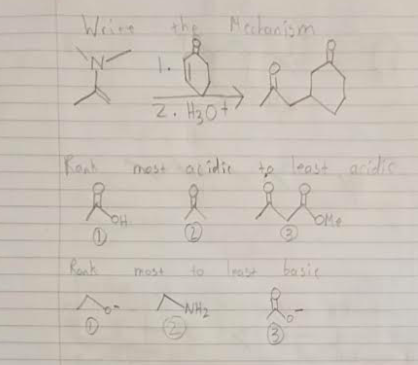 Write the Mechanism
N 1. O O O
2. H3O+
Rank most acidic to least acidic
O O O O
OH OMe
① ② ③
Rank most to least basic
O
O- NH2 O-
① ② ③